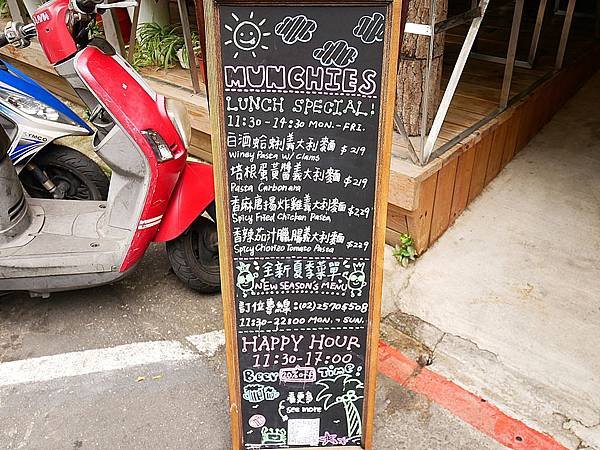 MUNCHIES
LUNCH SPECIAL!
11:30 - 14:30 MON. - FRI.
白酒蛤蜊義大利麵 $219
Winey Pasta w/ Clams
培根蛋黃醬義大利麵 $219
Pasta Carbonara
香麻唐揚炸雞義大利麵 $229
Spicy Fried Chicken Pasta
香辣茄汁臘腸義大利麵 $229
Spicy Chorizo Tomato Pasta
全新夏季菜單
NEW SEASON'S MENU
訂位專線:(02)2570 6508
11:30 - 22:00 MON. ~ SUN.
HAPPY HOUR
11:30-17:00
Beer 20% off Time!
看更多
see more
KYMCO